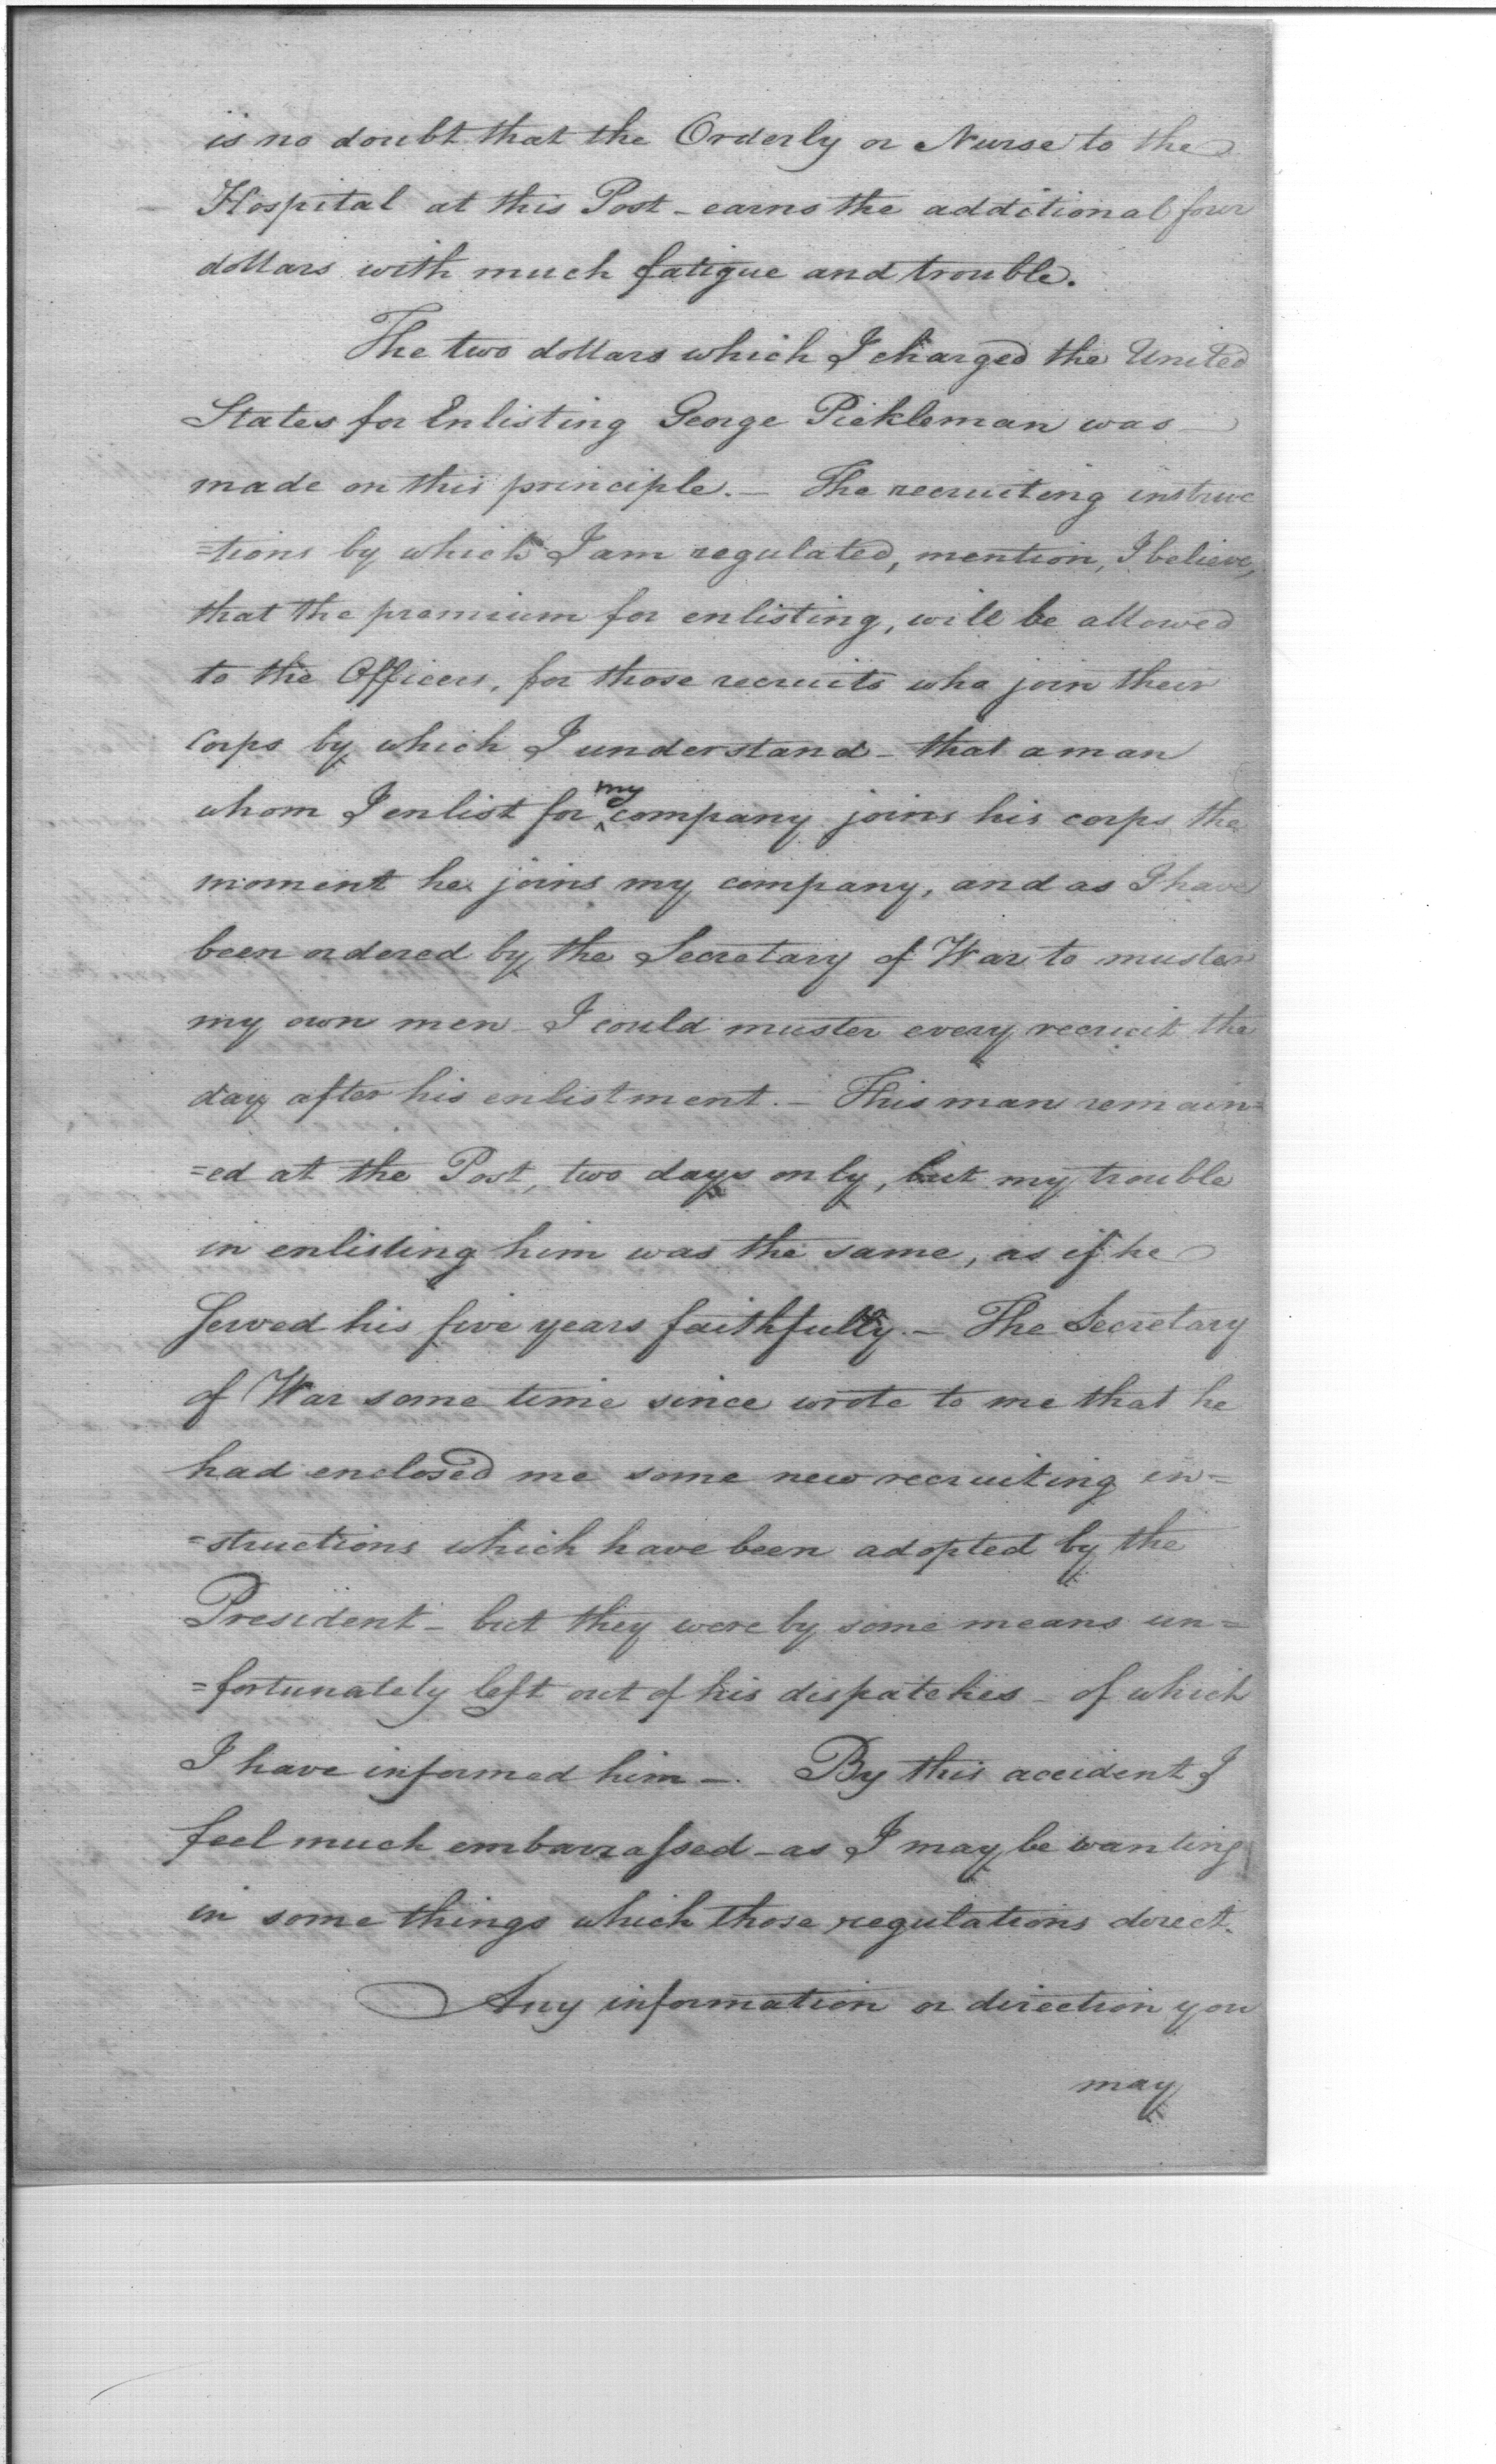 is no doubt that the Orderly or Nurse to the
Hospital at this Post - earns the additional four
dollars with much fatigue and trouble.
The two dollars which I charged the United
States for Enlisting George Pickleman was
made on this principle. - The recruiting instruc
=tions by which I am regulated, mention, I believe,
that the premium for enlisting, will be allowed
to the Officers, for those recruits who join their
corps by which I understand - that a man
whom I enlist for ^my company joins his corps the
moment he joins my company, and as I have
been ordered by the Secretary of War to muster
my own men - I could muster every recruit the
day after his enlistment. - This man remain=
=ed at the Post, two days only, but my trouble
in enlisting him was the same, as if he
served his five years faithfully. - The Secretary
of War some time since wrote to me that he
had enclosed me some new recruiting in=
=structions which have been adopted by the
President - but they were by some means un=
=fortunately left out of his dispatches - of which
I have informed him -. By this accident I
feel much embarrassed - as I may be wanting
in some things which those regulations direct.
Any information or direction you
may